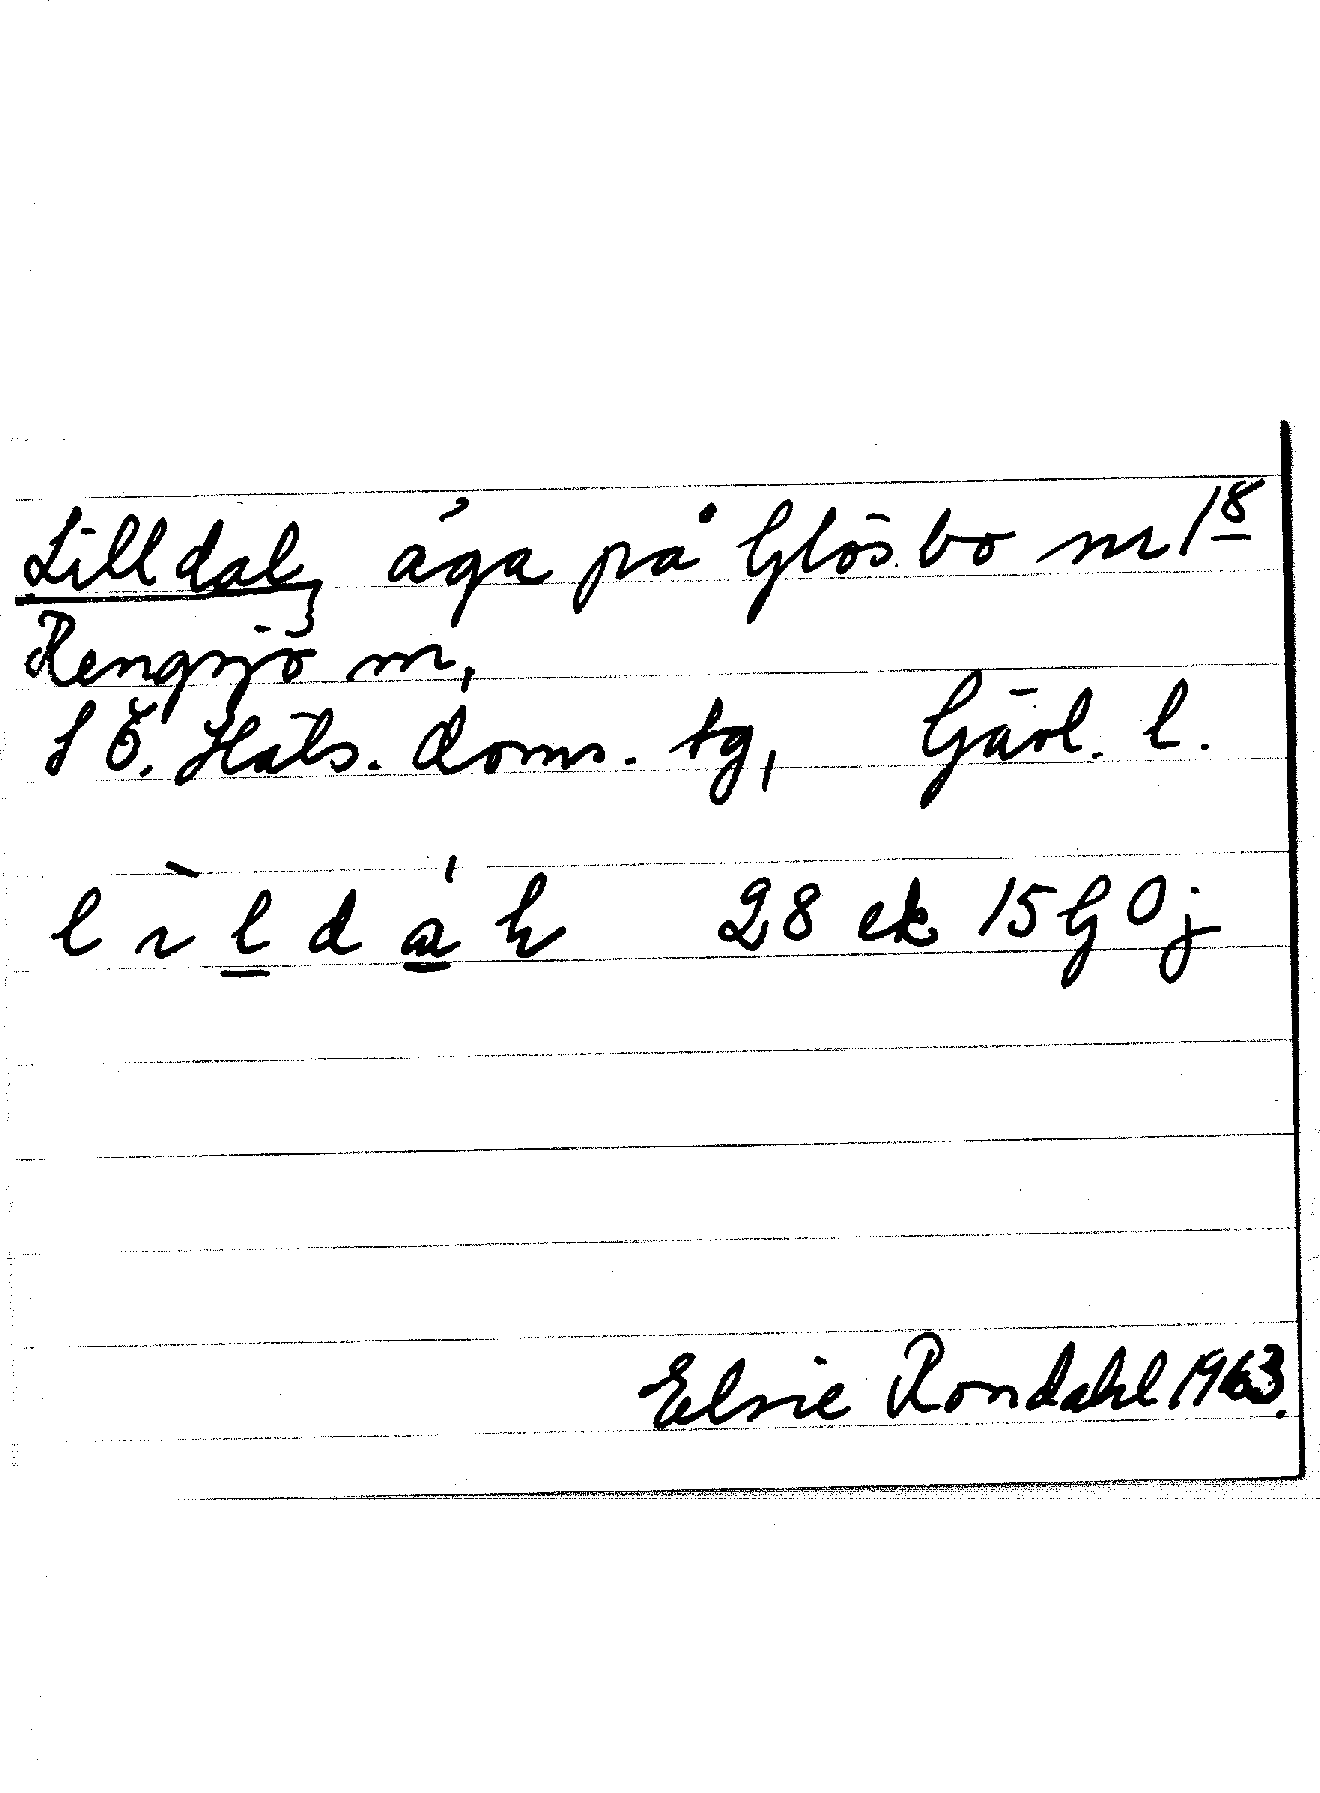 Lilldal, äga på Glösbo nr 1 8
Rengsjö sn,
S Ö. Häls. doms. tg, Gävl. l.
l ì l d á 28 ek 15G 0j
Elsie Rondahl 1963.